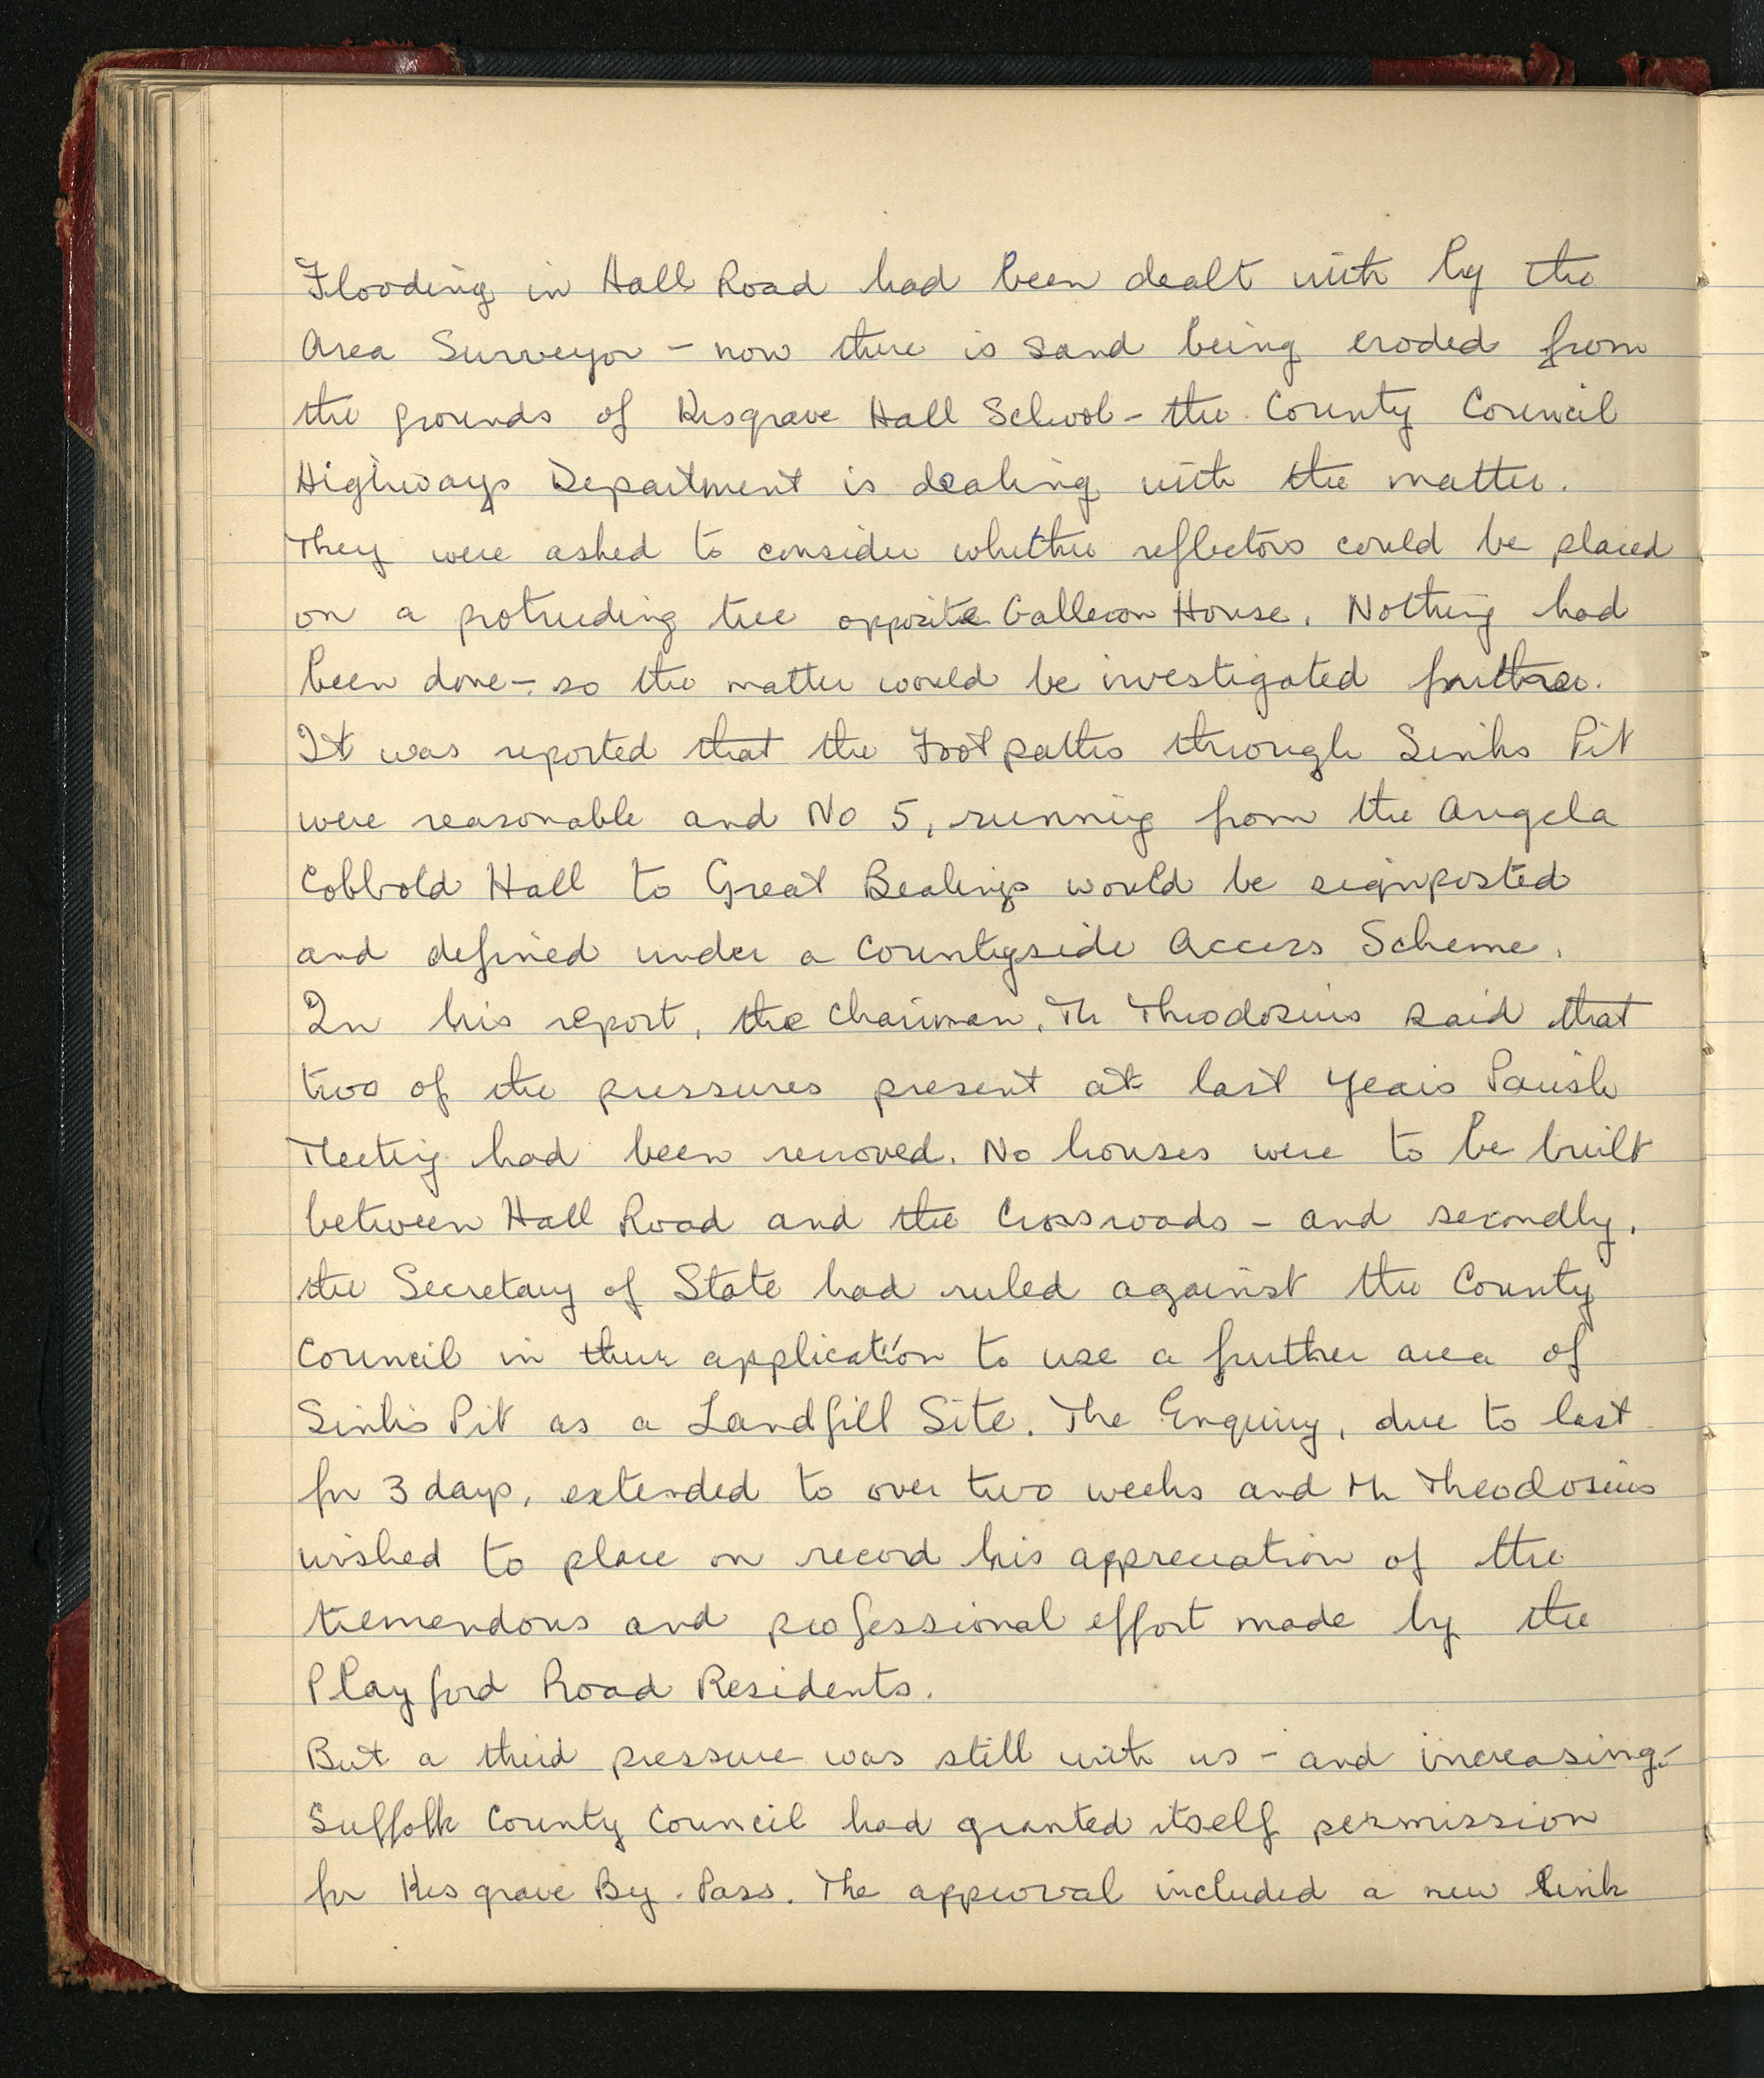 Flooding in Hall Road had been dealt with by the
Area Surveyor - now there is sand being eroded from
the grounds of Kesgrave Hall School - the County Council
Highways Department is dealing with the matter.
They were asked to consider whether reflectors could be placed
on a protruding tree opposite Galleon House. Nothing had
been done - so the matter would be investigated further.
It was reported that the Footpaths through Sinks Pit
were reasonable and No 5, running from the Angela
Cobbold Hall to Great Bealings would be signposted
and defined under a Countryside Access Scheme.
In his report, the Chairman, Mr Theodosius said that
two of the pressures present at last years Parish
Meeting had been removed. No houses were to be built
between Hall Road and the Crossroads - and secondly,
the Secretary of State had ruled against the County
Council in their application to use a further area of
Sinks Pit as a Landfill Site. The Enquiry, due to last
for 3 days, extended to over two weeks and Mr Theodosius
wished to place on record his appreciation of the
tremendous and professional effort made by the
Playford Road Residents.
But a third pressure was still with us - and increasing.
Suffolk County Council had granted itself permission
for Kesgrave By-Pass. The approval included a new link